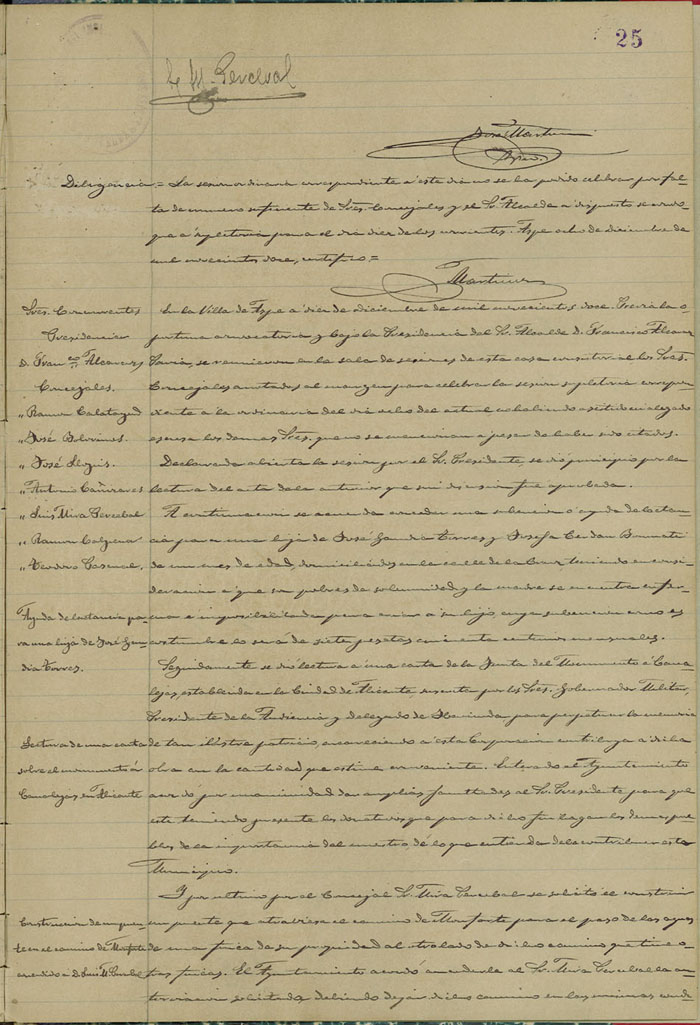 25
L. M. Perceval
José Martinez
Diligencia = La sesion ordinaria correspondiente á este dia no se ha podido celebrar por fal-
ta de numero suficiente de Sres. Concejales y el Sr. Alcalde a dispuesto se convo-
que á supletoria para el dia diez de los corrientes. Aspe ocho de diciembre de
mil novecientos doce, certifico =
Martinez
Sres. Concurrentes
Presidencia
D. Franco Alcaraz
Concejales.
" Ramon Calatayud
" José
" José
" Antonio Cañizares
" Luis Mira Percebal
" Ramon
" Teodoro Pascual
En la Villa de Aspe á diez de diciembre de mil novecientos doce. Previa la o-
portuna convocatoria y bajo la Presidencia del Sr. Alcalde D. Francisco Alcaraz
Soria, se reunieron en la sala de sesiones de esta casa consistorial los Sres.
Concejales anotados al margen para celebrar la sesion supletoria correspon-
diente á la ordinaria del dia ocho del actual no habiendo asistido ni alegado
escusa los demas Sres. que no se mencionan a pesar de haber sido citados.
Declarada abierta la sesion por el Sr. Presidente, se dió principio por la
lectura del acta de la anterior que sin discusion fue aprobada.
Ayuda de lactancia pa-
ra una hija de José Gan-
dia Torres.
A continuacion se acuerda conceder una subvencion o ayuda de lactan-
cia para una hija de José Gandia Torres y Josefa Cerdan
de un mes de edad, domiciliados en la calle de la Cruz teniendo en consi-
deracion a que son pobres de solemnidad y la madre se encuentra enfer-
ma é imposibilitada para criar a su hijo, cuya subvencion como es
costumbre lo será de siete pesetas cincuenta centimos mensuales.
Lectura de una carta
sobre el monumento á
Canalejas en Alicante
Seguidamente se dió lectura a una carta de la Junta del Monumento á Cana-
lejas, establecida en la Ciudad de Alicante, suscrita por los Sres. Gobernador Militar,
Presidente de la Audiencia y delegado de Hacienda para perpetuar la memoria
de tan ilustre patricio, encareciendo a esta Corporacion contribuya a dicha
obra con la cantidad que estime conveniente. Enterado el Ayuntamiento
acordó por unanimidad dar amplias facultades al Sr. Presidente para que
este teniendo presente los donativos que para dicho fin hagan los demas pue-
blos de la importancia del nuestro, de lo que entienda debe contribuir este
Municipio.
Construccion de un puen-
te en el camino de Monforte
concedido a D. Luis M. Percebal
Y por ultimo por el Concejal Sr. Mira Percebal se solicitó el construir
un puente que atraviese el camino de Monforte para el paso de las aguas
de una finca de su propiedad al otro lado de dicho camino que tiene o-
tras fincas. El Ayuntamiento acordó concederla al Sr. Mira Percebal la au-
torizacion solicitada, debiendo dejar dicho camino en las mismas condi-